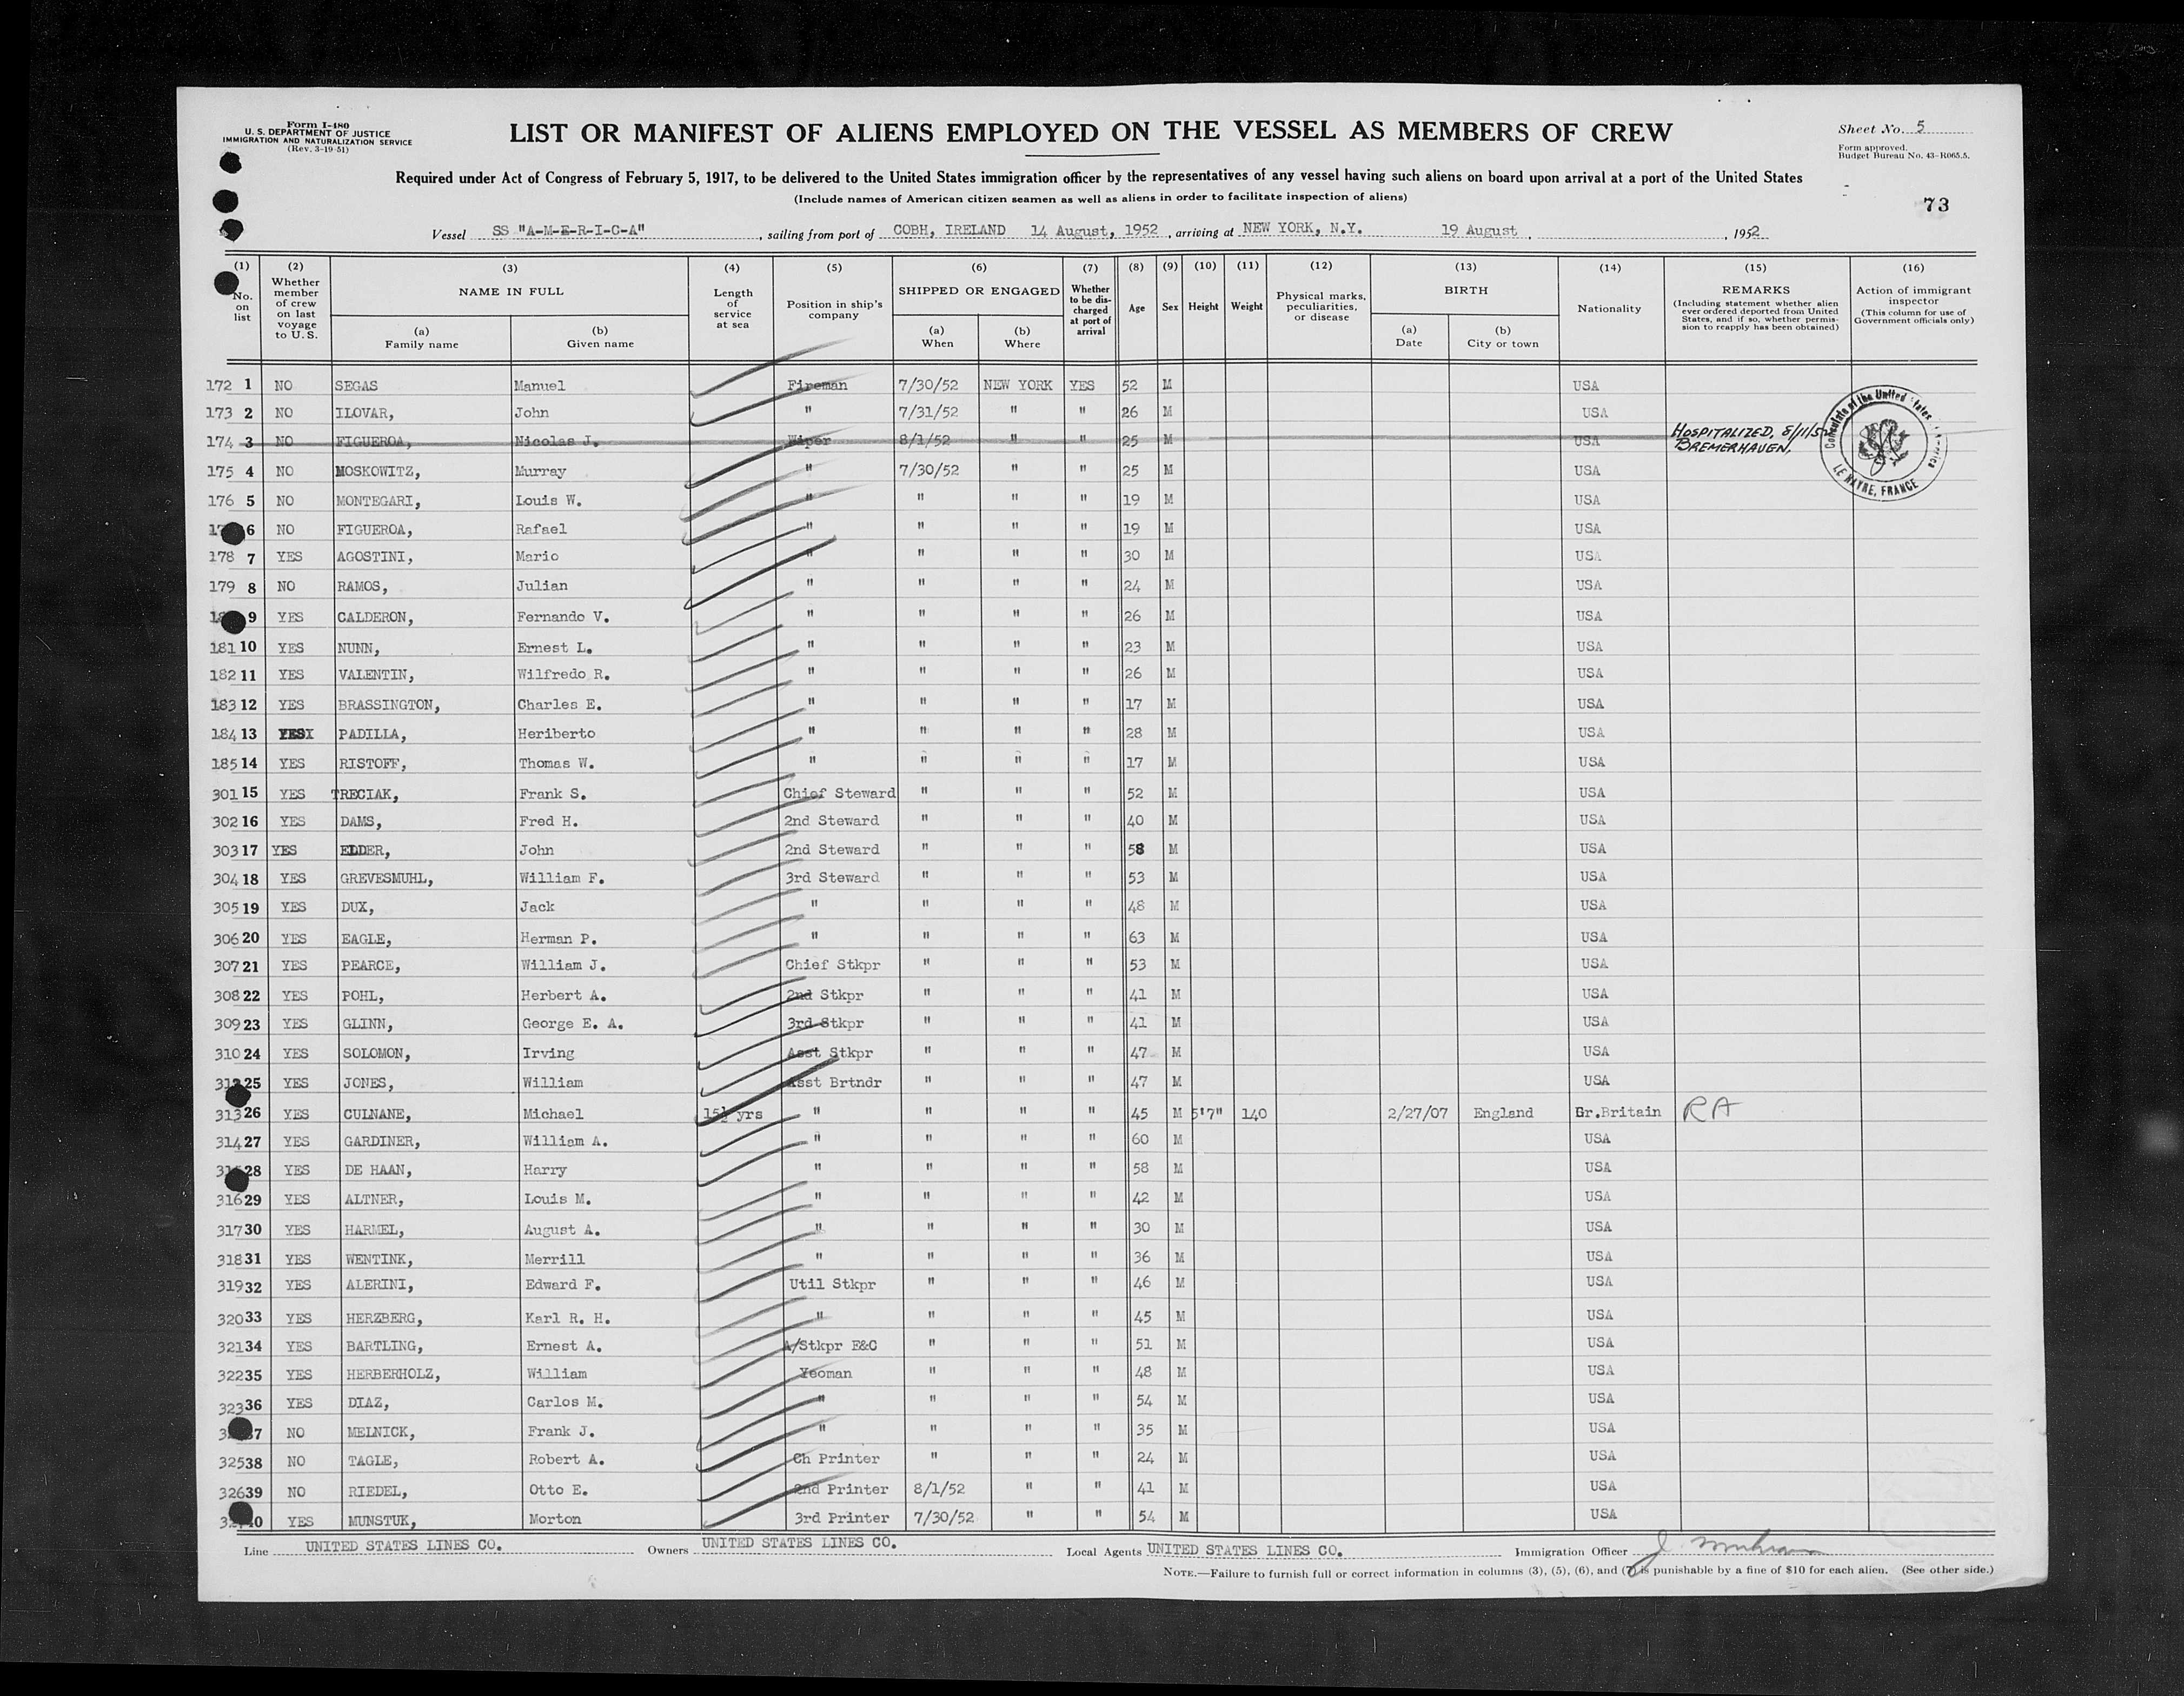 Form I-480
U. S. DEPARTMENT OF JUSTICE
IMMIGRATION AND NATURALIZATION SERVICE
(Rev. 3-19-51)
LIST OR MANIFEST OF ALIENS EMPLOYED ON THE VESSEL AS MEMBERS OF CREW
Sheet No. 5
Form approved.
Budget Bureau No. 43-R065.5.
Required under Act of Congress of February 5, 1917, to be delivered to the United States immigration officer by the representatives of any vessel having such aliens on board upon arrival at a port of the United States
(Include names of American citizen seamen as well as aliens in order to facilitate inspection of aliens)
73
Vessel SS "A-M-E-R-I-C-A", sailing from port of COBH, IRELAND 14 August, 1952, arriving at NEW YORK, N.Y. 19 August, 1952
(1) No. on list
(2) Whether member of crew on last voyage to U.S.
(3) NAME IN FULL (a) Family name (b) Given name
(4) Length of service at sea
(5) Position in ship's company
(6) SHIPPED OR ENGAGED (a) When (b) Where
(7) Whether to be discharged at port of arrival
(8) Age
(9) Sex
(10) Height
(11) Weight
(12) Physical marks, peculiarities, or disease
(13) BIRTH (a) Date (b) City or town
(14) Nationality
(15) REMARKS (Including statement whether alien ever ordered deported from United States, and if so, whether permission to reapply has been obtained)
(16) Action of immigrant inspector (This column for use of Government officials only)
172 1 NO SEGAS Manuel Fireman 7/30/52 NEW YORK YES 52 M USA
173 2 NO ILOVAR, John " 7/31/52 " " 26 M USA
174 3 NO FIGUEROA, Nicolas J. Wiper 8/1/52 " " 25 M USA HOSPITALIZED, 8/11/52 BREMERHAVEN,
Consulate of the United States America
LE HAVRE, FRANCE
175 4 NO MOSKOWITZ, Murray " 7/30/52 " " 25 M USA
176 5 NO MONTEGARI, Louis W. " " " " 19 M USA
6 NO FIGUEROA, Rafael " " " " 19 M USA
178 7 YES AGOSTINI, Mario " " " " 30 M USA
179 8 NO RAMOS, Julian " " " " 24 M USA
9 YES CALDERON, Fernando V. " " " " 26 M USA
181 10 YES NUNN, Ernest L. " " " " 23 M USA
182 11 YES VALENTIN, Wilfredo R. " " " " 26 M USA
183 12 YES BRASSINGTON, Charles E. " " " " 17 M USA
184 13 YES PADILLA, Heriberto " " " " 28 M USA
185 14 YES RISTOFF, Thomas W. " " " " 17 M USA
301 15 YES TRECIAK, Frank S. Chief Steward " " " 52 M USA
302 16 YES DAMS, Fred H. 2nd Steward " " " 40 M USA
303 17 YES ELDER, John 2nd Steward " " " 58 M USA
304 18 YES GREVESMUHL, William F. 3rd Steward " " " 53 M USA
305 19 YES DUX, Jack " " " " 48 M USA
306 20 YES EAGLE, Herman P. " " " " 63 M USA
307 21 YES PEARCE, William J. Chief Stkpr " " " 53 M USA
308 22 YES POHL, Herbert A. 2nd Stkpr " " " 41 M USA
309 23 YES GLINN, George E. A. 3rd Stkpr " " " 41 M USA
310 24 YES SOLOMON, Irving Asst Stkpr " " " 47 M USA
25 YES JONES, William Asst Brtndr " " " 47 M USA
313 26 YES CULNANE, Michael 15½ yrs " " " " 45 M 5'7" 140 2/27/07 England Gr.Britain RA
314 27 YES GARDINER, William A. " " " " 60 M USA
28 YES DE HAAN, Harry " " " " 58 M USA
316 29 YES ALTNER, Louis M. " " " " 42 M USA
317 30 YES HARMEL, August A. " " " " 30 M USA
318 31 YES WENTINK, Merrill " " " " 36 M USA
319 32 YES ALERINI, Edward F. Util Stkpr " " " 46 M USA
320 33 YES HERZBERG, Karl R. H. " " " " 45 M USA
321 34 YES BARTLING, Ernest A. A/Stkpr E&C " " " 51 M USA
322 35 YES HERBERHOLZ, William Yeoman " " " 48 M USA
323 36 YES DIAZ, Carlos M. " " " " 54 M USA
37 NO MELNICK, Frank J. " " " " 35 M USA
325 38 NO TAGLE, Robert A. Ch Printer " " " 24 M USA
326 39 NO RIEDEL, Otto E. 2nd Printer 8/1/52 " " 41 M USA
40 YES MUNSTUK, Morton 3rd Printer 7/30/52 " " 54 M USA
Line UNITED STATES LINES CO. Owners UNITED STATES LINES CO. Local Agents UNITED STATES LINES CO. Immigration Officer J.
NOTE.—Failure to furnish full or correct information in columns (3), (5), (6), and (7) is punishable by a fine of $10 for each alien. (See other side.)